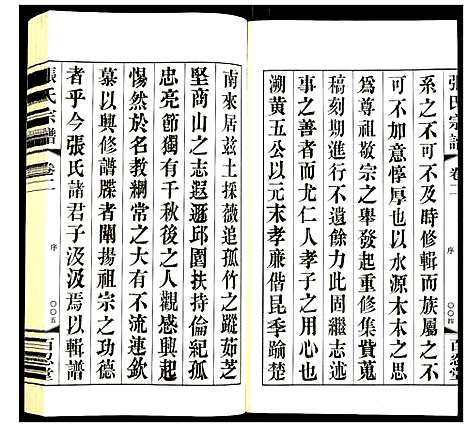 張氏宗譜
卷二
序
〇〇四
百忍堂
系之不可不及時修輯而族屬之
不可不加意惇厚也以水源木本之思
為尊祖敬宗之舉發起重修集貲蒐
稿刻期進行不遺餘力此固繼志述
事之善者而尤仁人孝子之用心也
溯黃五公以元末孝廉偕昆季踰楚
南來居茲土採薇追孤竹之蹤茹芝
堅商山之志遐遯邱園扶持倫紀孤
忠亮節獨有千秋後之人觀感興起
惕然於名教綱常之大不流連欽
慕以興修譜牒者闡揚祖宗之功德
者乎今張氏諸君子汲汲焉以輯譜
張氏宗譜
卷二
序
〇〇五
百忍堂